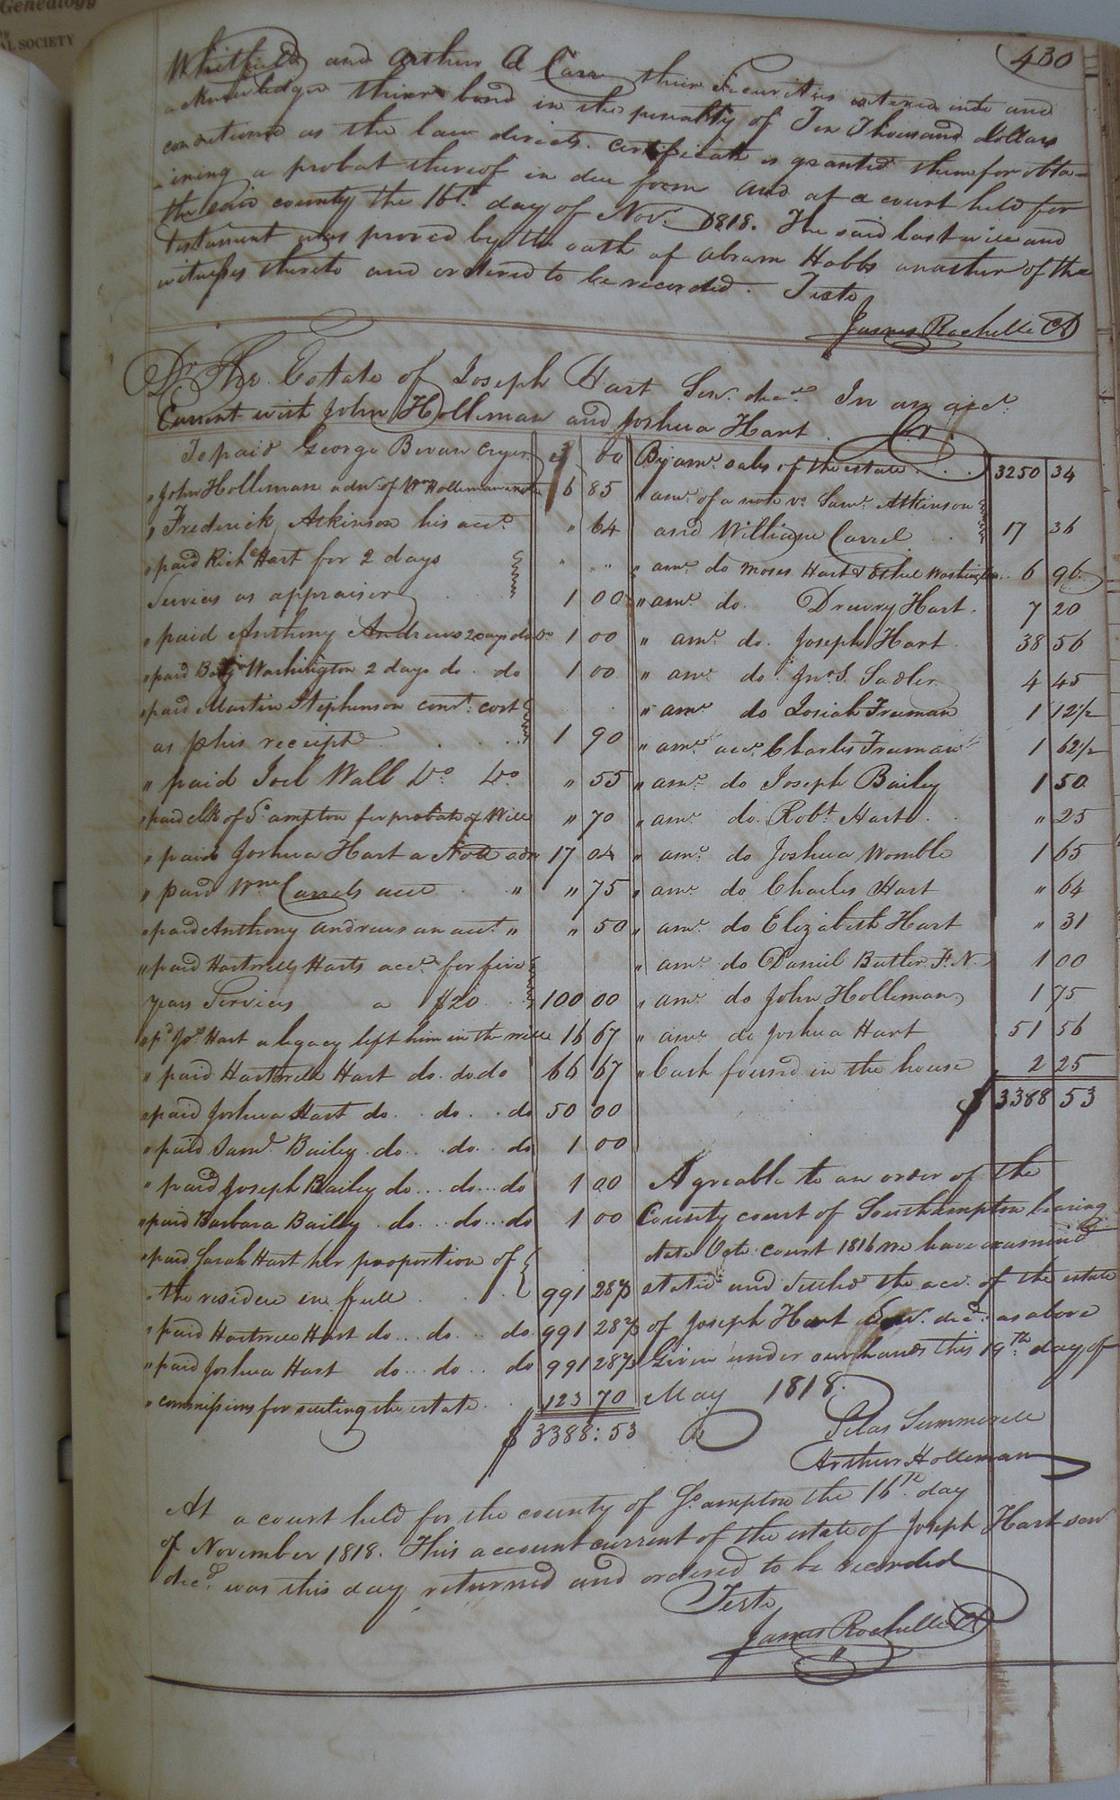 Genealogy
AL SOCIETY
430
Whitfield and Arthur A Carr their Securities entered into and
acknowledges their bond in the penalty of Ten Thousand dollars
conditioned as the law directs. Certificate is granted them for obta-
-ining a probat thereof in due form and at a court held for
the said county the 16th. day of Novr. 1818. The said last will and
testament was proved by the oath of Abram Hobbs another of the
witnesses thereto and ordered to be recorded. Teste
James Rochelle
Dr. The Estate of Joseph Hart Senr. decd. In an acct.
Current with John Holleman and Joshua Hart. Cr.
To paid George Bevan Cryer 00
" John Holleman adm. of Wm Holleman 6 85
" Frederick Atkinson his acct. " 64
" paid Richd Hart for 2 days
Services as appraiser 1 00
" paid Anthony Andrews 2 days do Do 1 00
" paid Washington 2 days do. do 1 00
" paid Martin Stephenson cost
as p his receipt 1 90
" paid Joel Wall Do Do " 55
" paid clk of So ampton for probate of Will " 70
" paid Joshua Hart a Note 17 04
" paid Wm Carrels acct " " 75
" paid Anthony Andrews an acct. " " 50
" paid Hartwell Harts acct. for five
years Services a $20 100 00
" pd. Jos. Hart a legacy left him in the will 16 67
" paid Hartwell Hart do. do do 66 67
" paid Joshua Hart do. do. do 50 00
" paid Saml. Bailey do. do. do 1 00
" paid Joseph Bailey do... do... do 1 00
" paid Barbara Bailey do... do... do 1 00
" paid Sarah Hart her proportion of
the residue in full 991 28
" paid Hartwell Hart do... do... do 991 28
" paid Joshua Hart do... do... do 991 28
" commissions for settling the estate 123 70
$ 3388:53
By amt. sales of the estate 3250 34
" amt. of a note vs Saml. Atkinson
and William Carrel 17 36
" amt. do Moses Hart & Washington 6 96
" amt. do. Drewry Hart. 7 20
" amt. do. Joseph Hart 38 56
" amt do Jno S. Sadler 4 45
" amt. do Josiah Freeman 1 12 1/2
" amt. acct. Charles Freeman 1 62 1/2
" amt. do Joseph Bailey 1 50
" amt. do. Robt. Hart " 25
" amt. do Joshua Womble 1 65
" amt. do Charles Hart " 64
" amt. do Elizabeth Hart " 31
" amt. do Daniel Butler F. N. 1 00
" amt. do John Holleman 1 75
" amt. do Joshua Hart 51 56
" Cash found in the house 2 25
$ 3388 53
Agreable to an order of the
County court of Southampton bearing
date Octo. court 1816 we have examined
stated and settled the acct. of the estate
of Joseph Hart Senr. decd. as above
Given under our hands this 19th. day of
May 1818.
Silas Summerell
Arthur Holleman
At a court held for the county of So ampton the 16th day
of November 1818. This account current of the estate of Joseph Hart sen
decd. was this day returned and ordered to be recorded
Teste
James Rochelle